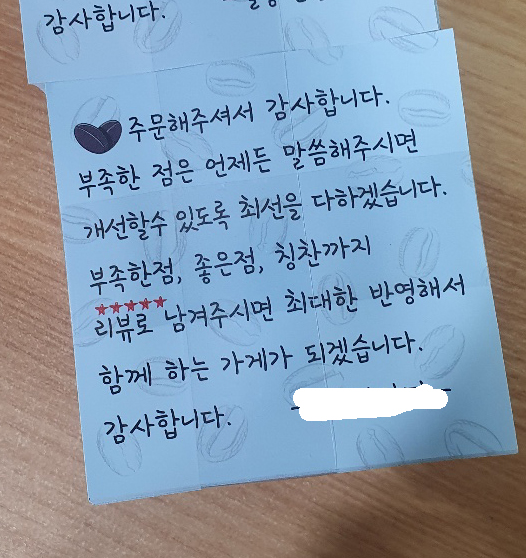 감사합니다.
주문해주셔서 감사합니다.
부족한 점은 언제든 말씀해주시면
개선할수 있도록 최선을 다하겠습니다.
부족한점, 좋은점, 칭찬까지
★★★★★
리뷰로 남겨주시면 최대한 반영해서
함께 하는 가게가 되겠습니다.
감사합니다.